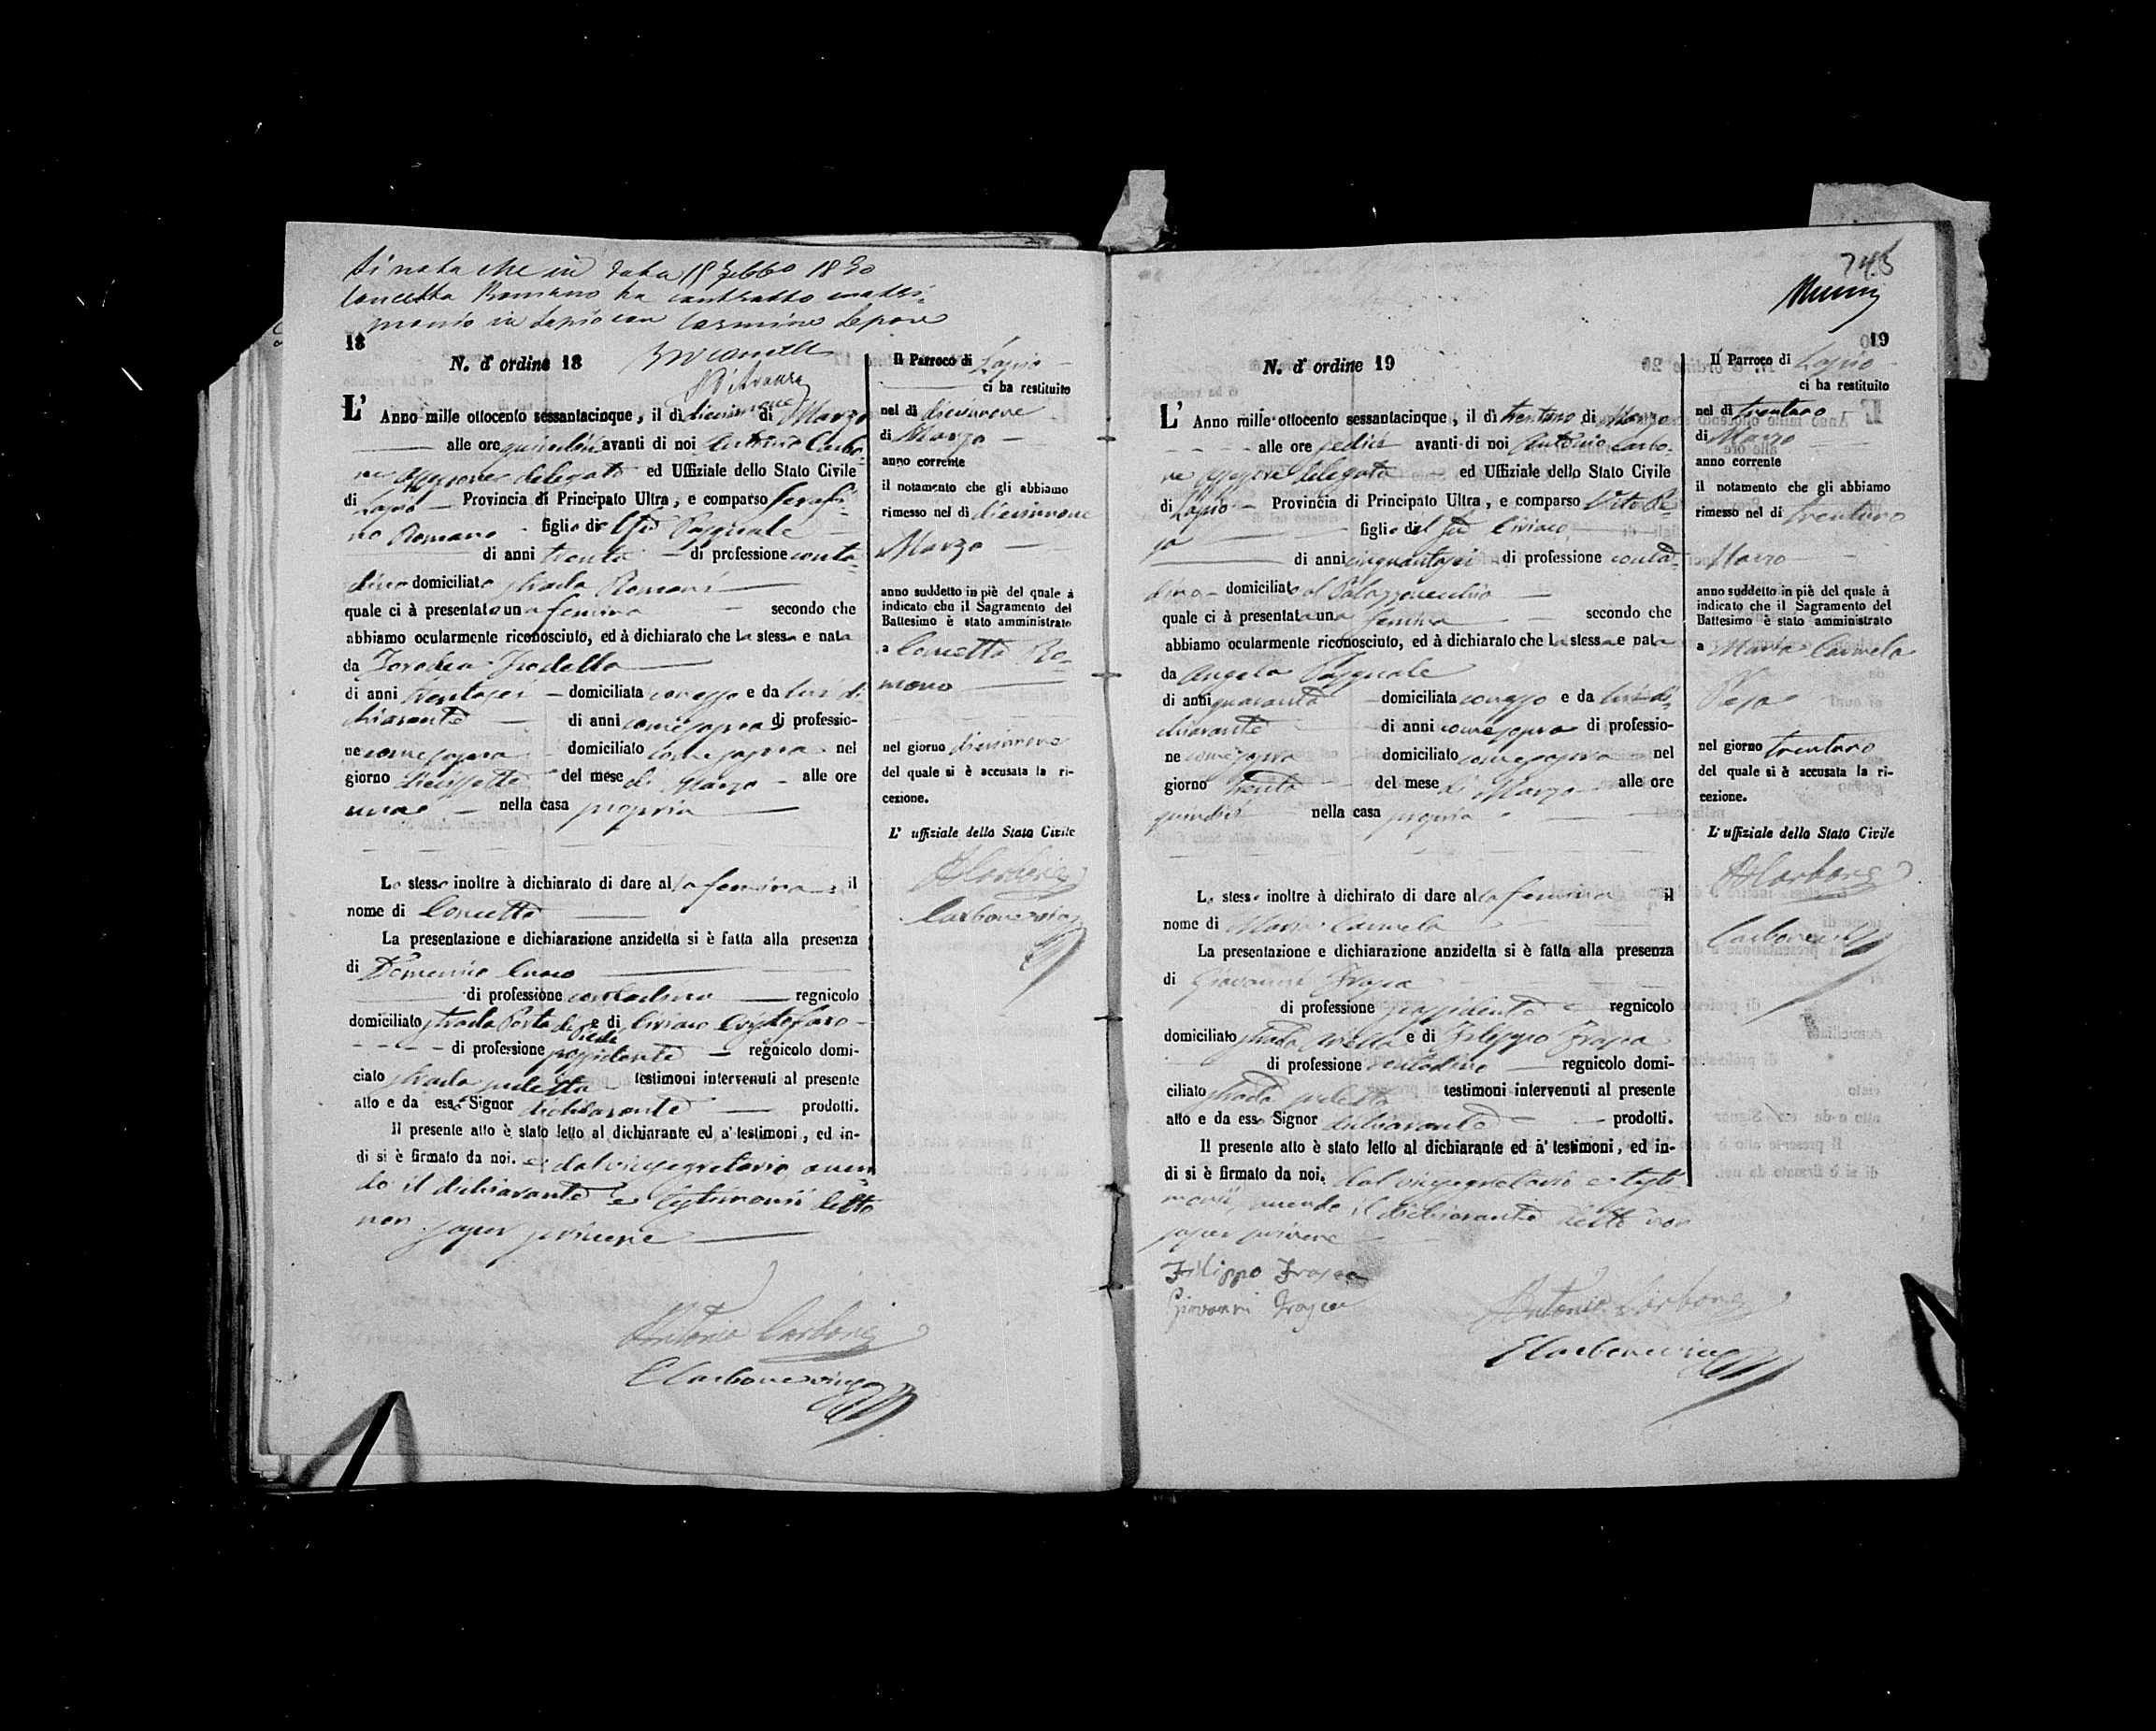 Si nota che in data 15 Febbo 1890
Concetta Romano ha contratto matri-
monio in Lapio con Carmine Lepore
18
N. d' ordine 18
L' Anno mille ottocento sessantacinque, il dì diecinnove di Marzo
alle ore quindici avanti di noi Antonio Carbo-
ne assessore delegato ed Uffiziale dello Stato Civile
di Lapio Provincia di Principato Ultra, e comparso Serafi-
no Romano figlio di fu Pasquale
di anni trenta di professione conta-
dino domiciliato strada Romani
quale ci à presentata una femina secondo che
abbiamo ocularmente riconosciuto, ed à dichiarato che la stessa e nata
da
di anni trentasei domiciliata con esso e da lui di-
chiarante di anni come sopra di professio-
ne come sopra domiciliato come sopra nel
giorno diecissette del mese di Marzo alle ore
una nella casa propria
Lo stesso inoltre à dichiarato di dare alla femina il
nome di Concetta
La presentazione e dichiarazione anzidetta si è fatta alla presenza
di Domenico
di professione contadino regnicolo
domiciliato strada Porta di Piede e di Ciriaco Cristofaro
di professione possidente regnicolo domi-
ciato strada testimoni intervenuti al presente
atto e da esso Signor dichiarante prodotti.
Il presente atto è stato letto al dichiarante ed a' testimoni, ed in-
di si è firmato da noi. e dal vicesegretario, aven-
do il dichiarante e testimonii detto
non saper scrivere
Antonio Carbone
Carbone
Il Parroco di Lapio
ci ha restituito
nel dì diecinnove
di Marzo
anno corrente
il notamento che gli abbiamo
rimesso nel dì diecinnove
Marzo
anno suddetto in piè del quale à
indicato che il Sagramento del
Battesimo è stato amministrato
a Concetta Ro-
mano
nel giorno diecinnove
del quale si è accusata la ri-
cezione.
L' uffiziale dello Stato Civile
A Carbone
Carbone
745
19
N. d' ordine 19
L' Anno mille ottocento sessantacinque, il dì trentuno di Marzo
alle ore sedici avanti di noi Antonio Carbo-
ne assessore delegato ed Uffiziale dello Stato Civile
di Lapio Provincia di Principato Ultra, e comparso Vito Pe-
sa figlio del fu Ciriaco
di anni cinquantasei di professione conta-
dino domiciliato al Palazzovecchio
quale ci à presentata una femina secondo che
abbiamo ocularmente riconosciuto, ed à dichiarato che la stessa e nata
da Angela Pasquale
di anni quaranta domiciliata con esso e da lui di-
chiarante di anni come sopra di professio-
ne come sopra domiciliato come sopra nel
giorno trenta del mese di Marzo alle ore
quindici nella casa propria
Lo stesso inoltre à dichirato di dare alla femina il
nome di Maria Carmela
La presentazione e dichiarazione anzidetta si è fatta alla presenza
di Giovanni Frasca
di professione possidente regnicolo
domiciliato strada e di Filippo Frasca
di professione contadino regnicolo domi-
ciliato strada testimoni intervenuti al presente
atto e da esso Signor dichiarante prodotti.
Il presente atto è stato letto al dichiarante ed a' testimoni, ed in-
di si è firmato da noi. dal vicesegretario e testi-
monii, avendo il dichiarante detto non
saper scrivere
Filippo Frasca
Giovanni Frasca
Antonio Carbone
Carbone
Il Parroco di Lapio
ci ha restituito
nel dì trentuno
di Marzo
anno corrente
il notamento che gli abbiamo
rimesso nel dì trentuno
Marzo
anno suddetto in piè del quale à
indicato che il Sagramento del
Battesimo è stato amministrato
a Maria Carmela
Pesa
nel giorno trentuno
del quale si è accusata la ri-
cezione.
L' uffiziale dello Stato Civile
A Carbone
Carbone